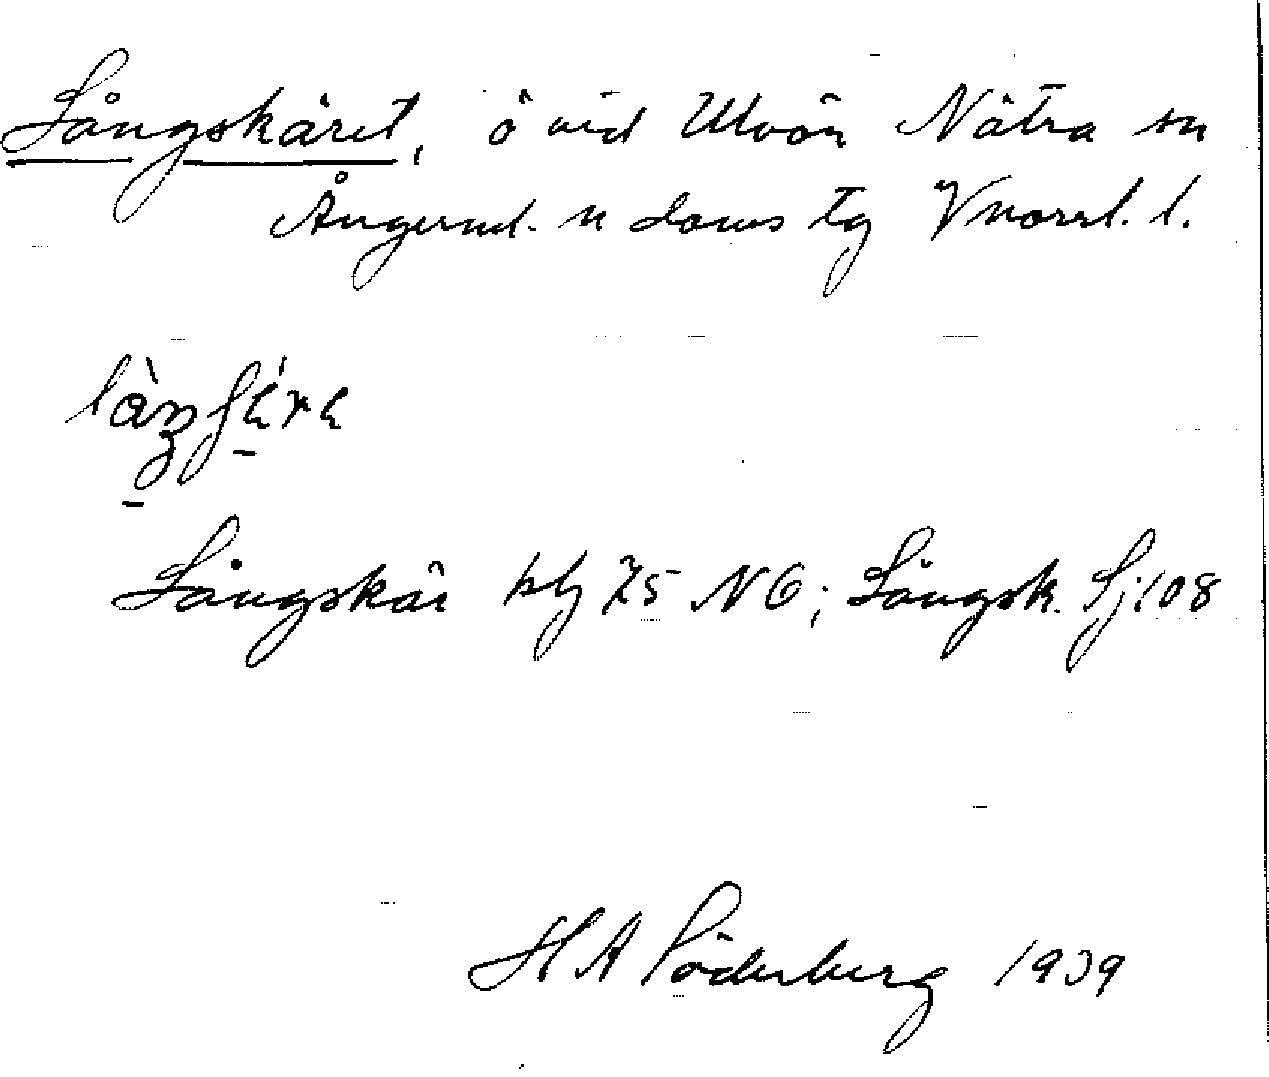 Långskäret, ö vid Ulvön Nätra sn
Ångerml. n doms tg Vnorrl. l.
Långskär kbl 75 NO; Långsk. Sj 108
H A Söderberg 1939